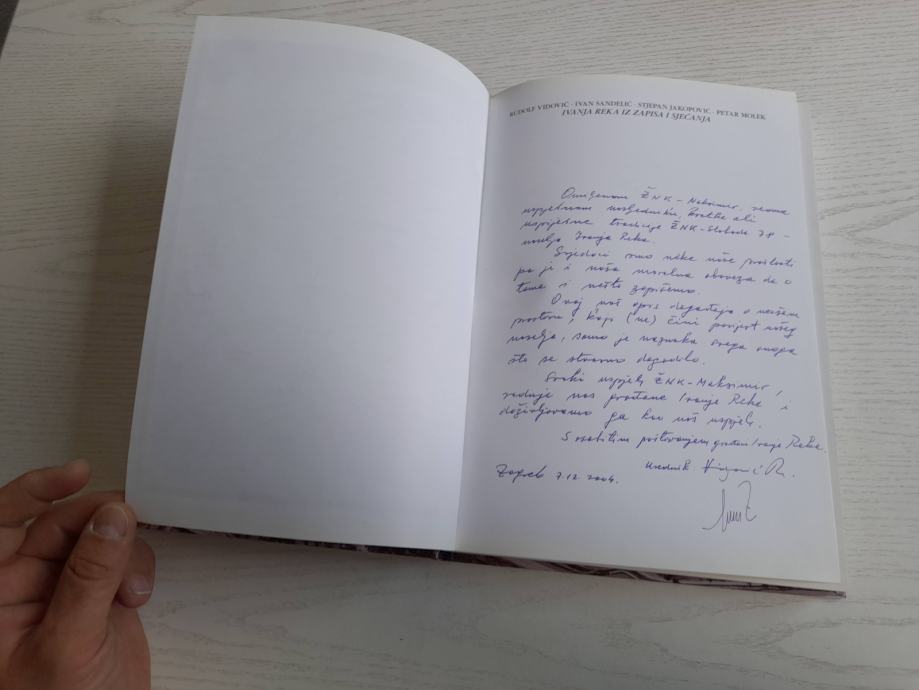 RUDOLF VIDOVIĆ · IVAN SANDELIĆ · STJEPAN JAKOPOVIĆ · PETAR MOLEK
IVANJA REKA IZ ZAPISA I SJEĆANJA
Omiljenom ŽNK - Maksimir, veoma
uspješnom nasljedniku, kratke ali
uspješne tradicije ŽNK - Sloboda 78 -
naselja Ivanja Reka.
Svjedoci smo neke naše prošlosti
pa je i naša moralna obveza da o
tome i nešto zapišemo.
Ovaj naš opis događaja o našem
prostoru, koji (ne) čini povijest našeg
naselja, samo je naznaka svega onoga
što se stvarno dogodilo.
Svaki uspjeh ŽNK - Maksimir,
raduje nas građane Ivanje Reke i
doživljavamo ga kao naš uspjeh.
S osobitim poštovanjem građani Ivanje Reke.
Urednik
Zagreb 7.12.2004.